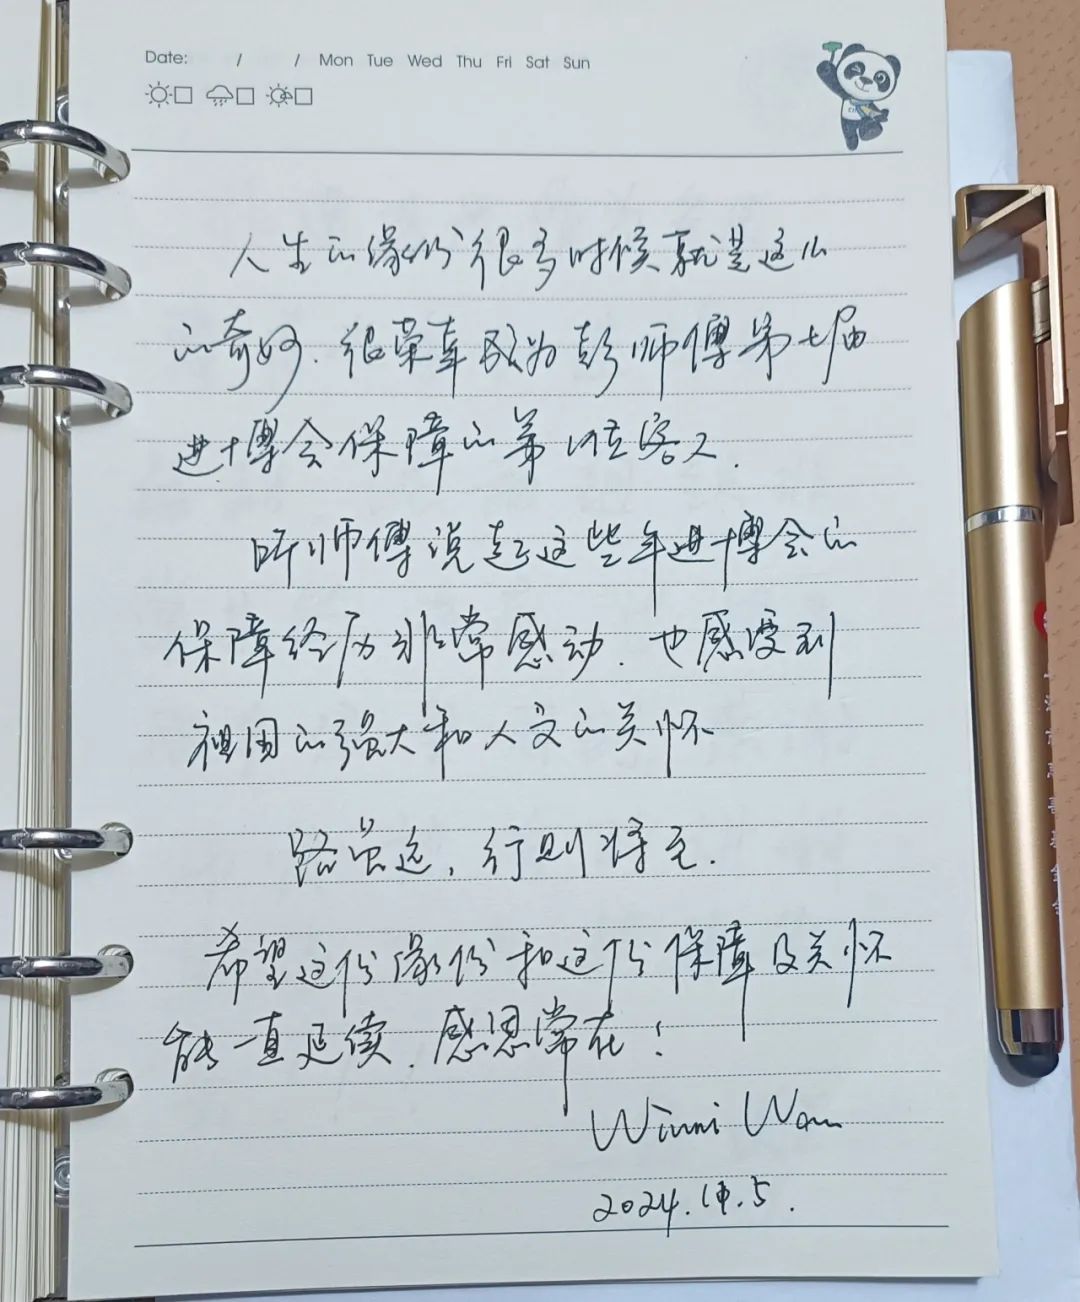 Date: / / Mon Tue Wed Thu Fri Sat Sun
人生的缘份很多时候就是这么
的奇妙.很荣幸成为彭师傅第七届
进博会保障的第1位客人.
听师傅说起这些年进博会的
保障经历非常感动.也感受到
祖国的强大和人文的关怀
路虽远,行则将至.
希望这份缘份和这份保障及关怀
能一直延续.感恩常在!
Winni Wan